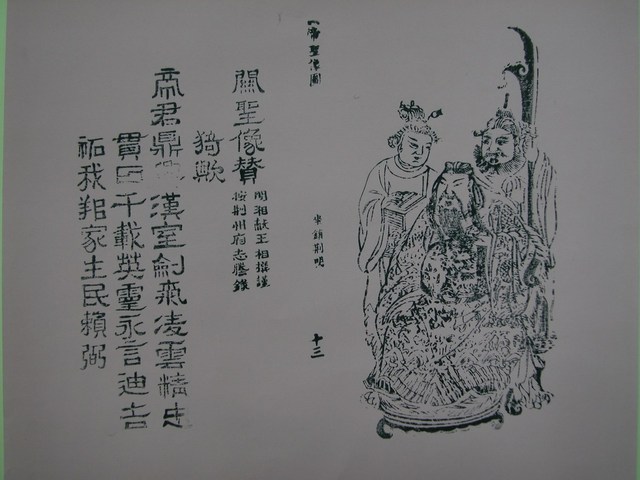 帝聖像圖
十三
關聖像贊
王相撰謹
按荊州府志謄錄
猗歟
帝君鼎漢室劍氣凌雲精忠
貫日千載英靈永言迪吉
祐我邦家生民賴弼